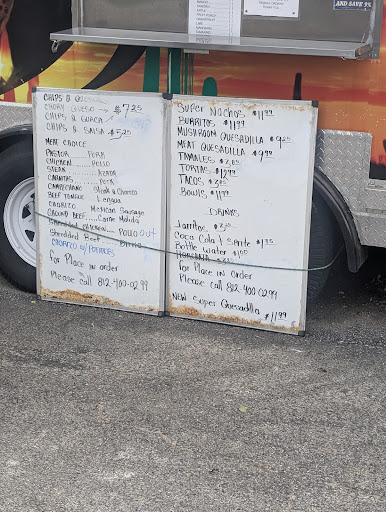 AND SAVE 3%
CHIPS & QUESO
CHORY QUESO → $7.25
CHIPS & GUACA
CHIPS & SALSA $5.25
MEAT CHOICE
PASTOR ...... PORK
CHICKEN ...... POLLO
STEAK ...... 
CARNITAS ...... PORK
CAMPECHANO Steak & Chorizo
BEEF TONGUE Lengua
CHORIZO Mexican Sausage
GROUND BEEF ..... Carne Molida
Shredded CHICKEN ..... POLLO out
Shredded Beef
CHORIZO w/ POTATOES
for Place in order
Please call 812-400-0299
Super Nachos $11.99
BURRITOS $11.99
MUSHROOM QUESADILLA $9.25
MEAT QUESADILLA $9.99
TAMALES
TORTAS $11.99
TACOS
Bowls $11.99
DRINKS
Jarritos
Coca Cola & Sprite $1.75
Bottle water $1.00
HORCHATA
for Place in order
Please call 812-400-0299
NEW Super Quesadilla $11.99